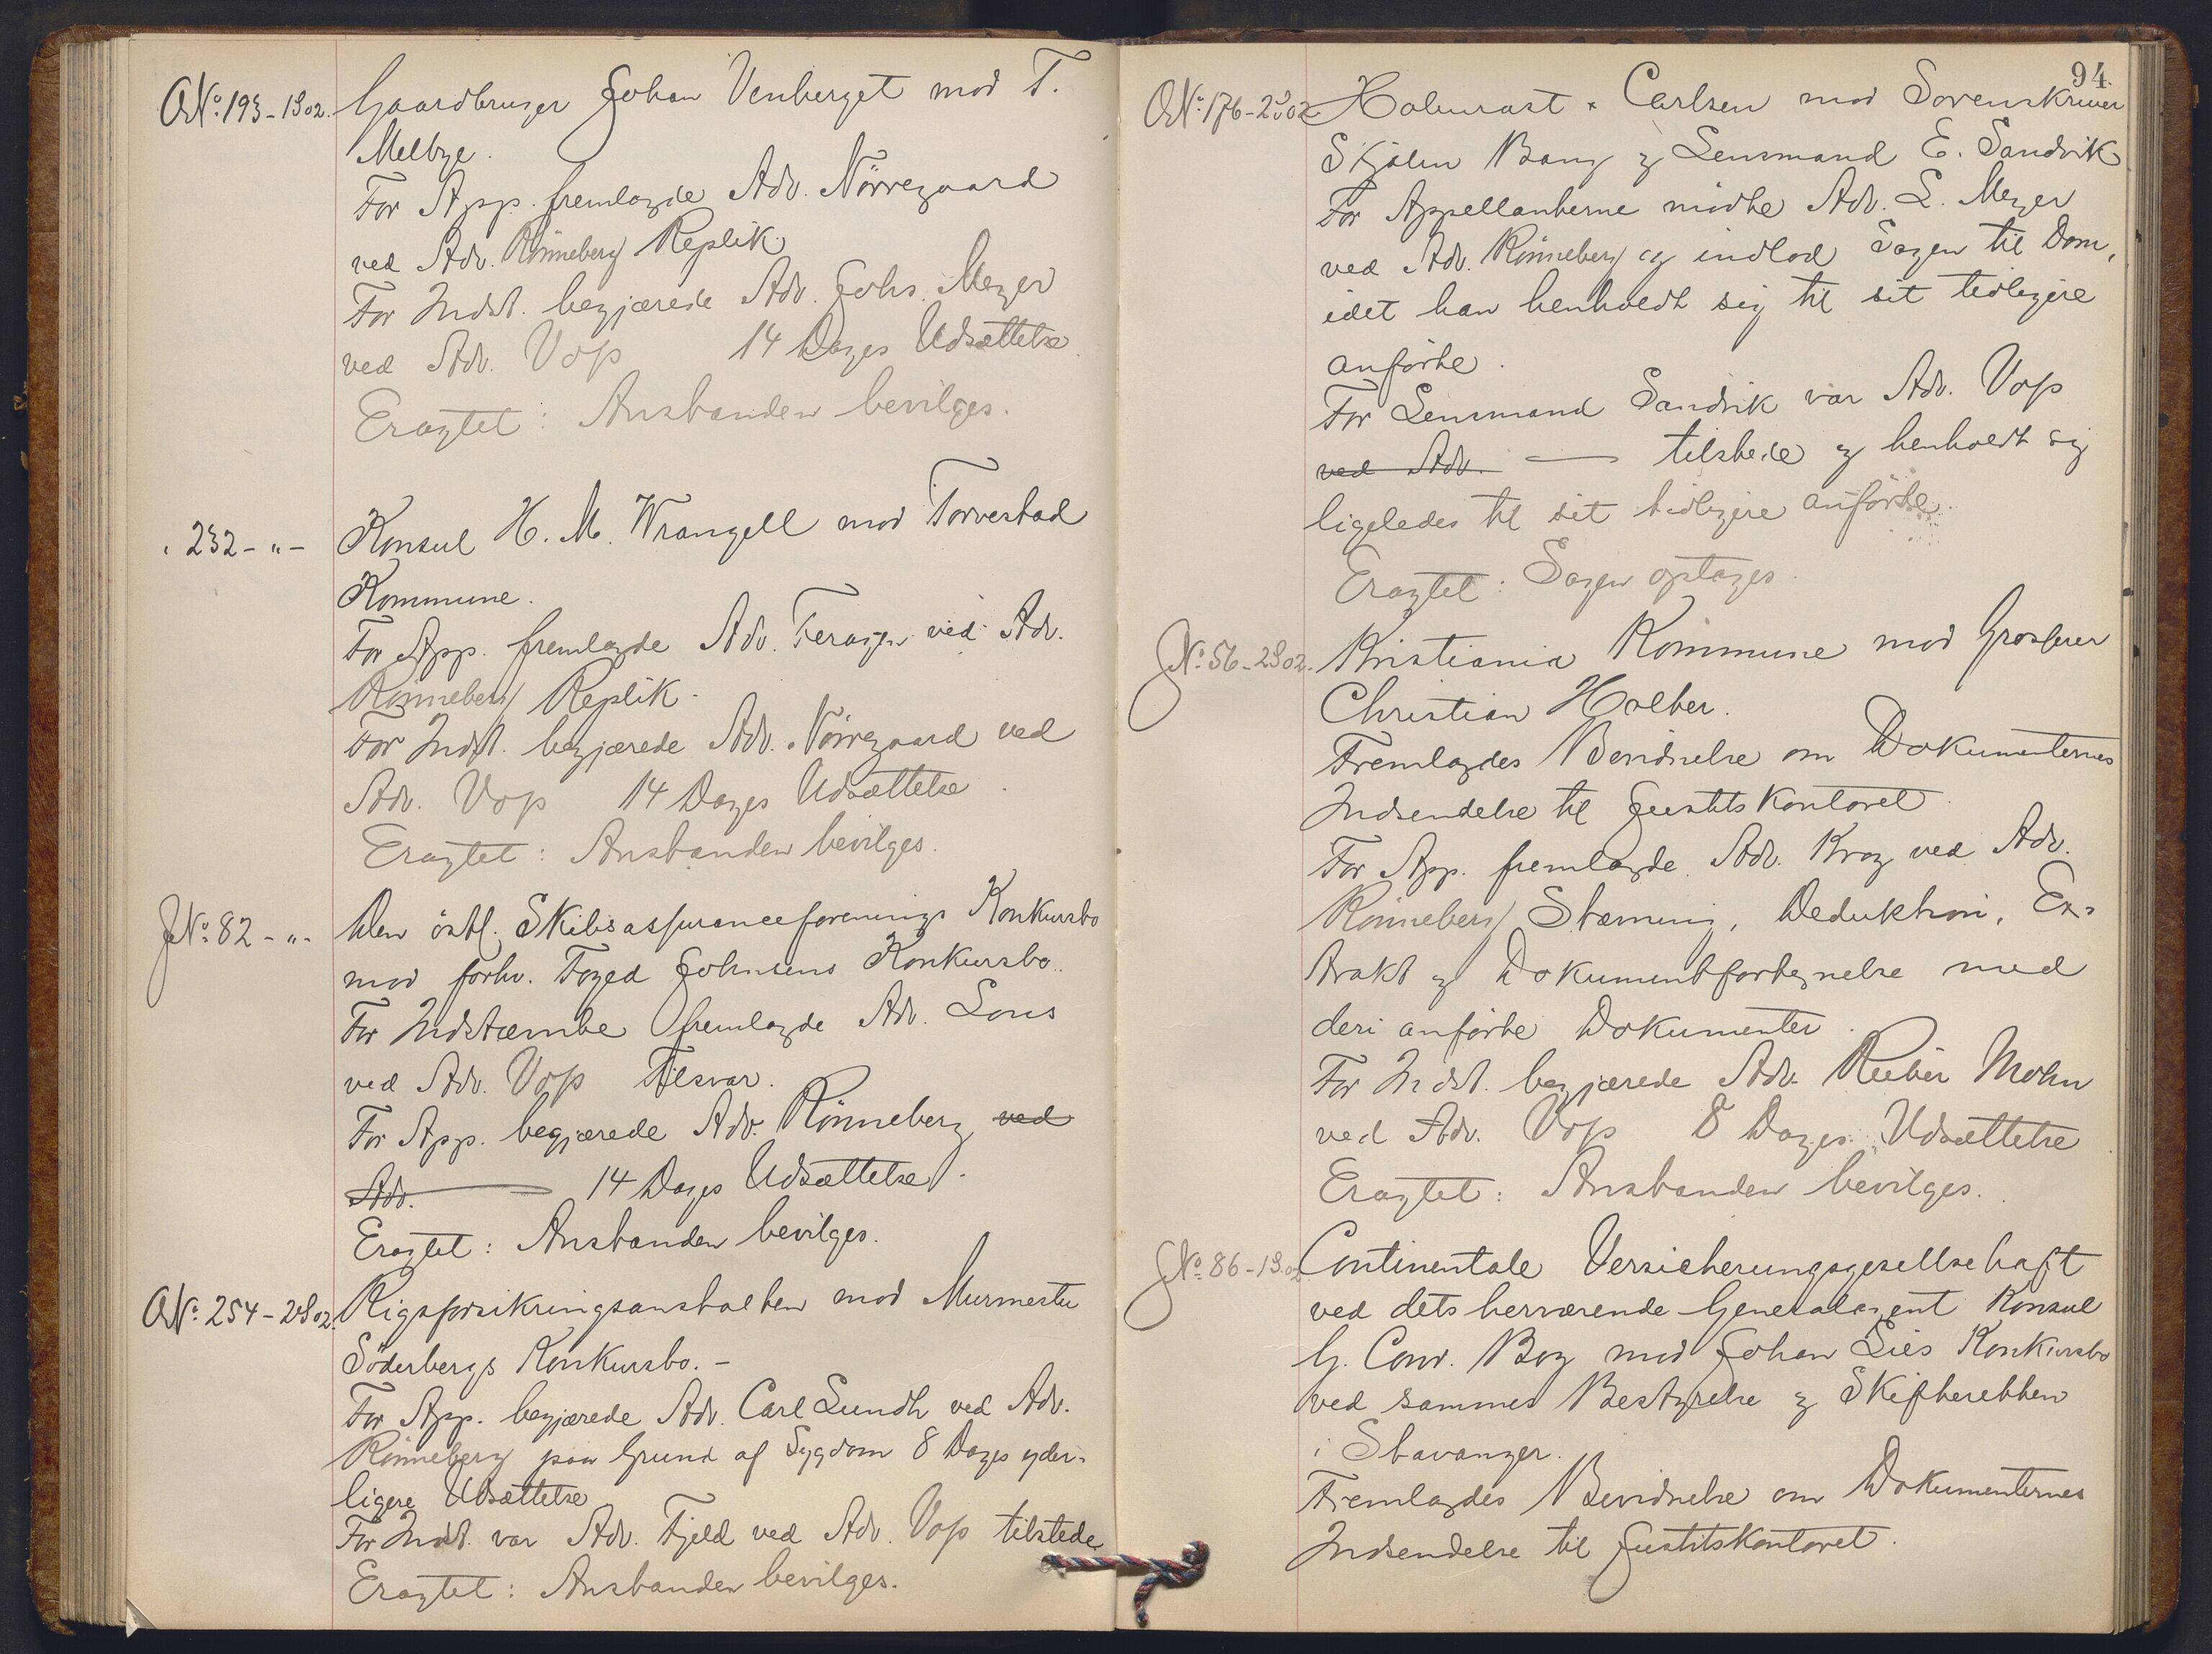 ANo. 193-1S02. Gaardbruger Johan Venberget mod T.
Melbye.
For App. fremlagde Adv. Nörregaard
ved Adv. Rönneberg Replik.
For Indst. begjærede Adv. Johs. Meyer
ved Adv. Vop 14 Dages Udsættelse
Eragtet: Anstanden bevilges.
" 232-"- Konsul H. M. Wrangell mod Torvestad
Kommune.
For App. fremlagde Adv. Feragen ved Adv.
Rönneberg Replik.
For Indst. begjærede Adv. Nörregaard ved
Adv. Vop 14 Dages Udsættelse.
Eragtet: Anstanden bevilges.
JNo. 82-"- Den östl. Skibsassuranceforenings Konkursbo
mod forhv. Foged Johnsens Konkursbo.
For Indstævnte fremlagde Adv. Lous
ved Adv. Vop Tilsvar.
For App. begjærede Adv. Rönneberg ved
Adv. 14 Dages Udsættelse.
Eragtet: Anstanden bevilges.
ANo. 254-2S02. Rigsforsikringsanstalten mod Murmester
Söderbergs Konkursbo.-
For App. begjærede Adv. Carl Lundh ved Adv.
Rönneberg paa Grund af Sygdom 8 Dages yder-
ligere Udsættelse
For Indst. var Adv. Fjeld ved Adv. Vop tilstede
Eragtet: Anstanden bevilges.
94.
ANo. 176-2S02 Holmrast & Carlsen mod Sorenskriver
Skjalm Bang og Lensmand E. Sandvik
For Appellanterne mödte Adv. L. Meyer
ved Adv. Rönneberg og indlod Sagen til Dom,
idet han henholdt sig til sit tidligere
anförte.
For Lensmand Sandvik var Adv. Vop
ved Adv. tilstede og henholdt sig
ligeledes til sit tidligere anförte.
Eragtet: Sagen optages.
JNo. 56-2S02. Kristiania Kommune mod Grosserer
Christian Holter.
Fremlagdes Bevidnelse om Dokumenternes
Indsendelse til Justitskontoret.
For App. fremlagde Adv. Krag ved Adv.
Rönneberg Stævning, Deduktion, Ex-
trakt og Dokumentfortegnelse med
deri anförte Dokumenter.
For Indst. begjærede Adv. Rieber Mohn
ved Adv. Vop 8 Dages Udsættelse
Eragtet: Anstanden bevilges.
JNo. 86-1S.02 Continentale Versicherungsgesellschaft
ved dets herværende Generalagent Konsul
G. Conr. Boy mod Johan Lies Konkursbo
ved sammes Bestyrelse og Skifteretten
i Stavanger.
Fremlagdes Bevidnelse om Dokumenternes
Indsendelse til Justitskontoret.